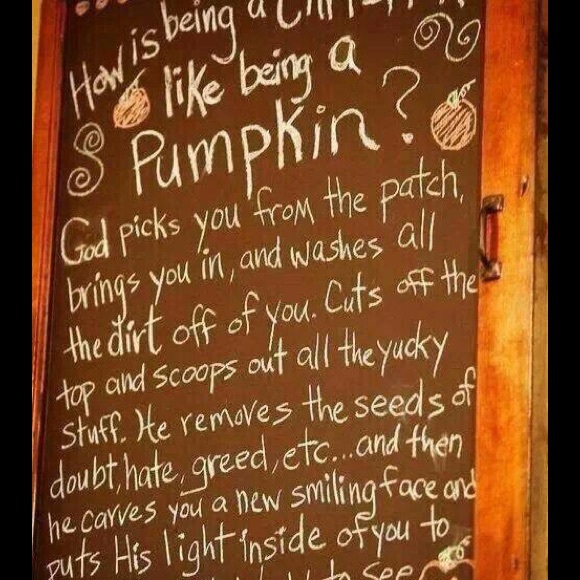 How is being a
like being a
Pumpkin?
God picks you from the patch,
brings you in, and washes all
the dirt off of you. Cuts off the
top and scoops out all the yucky
stuff. He removes the seeds of
doubt, hate, greed, etc...and then
he carves you a new smiling face and
puts His light inside of you to
to see